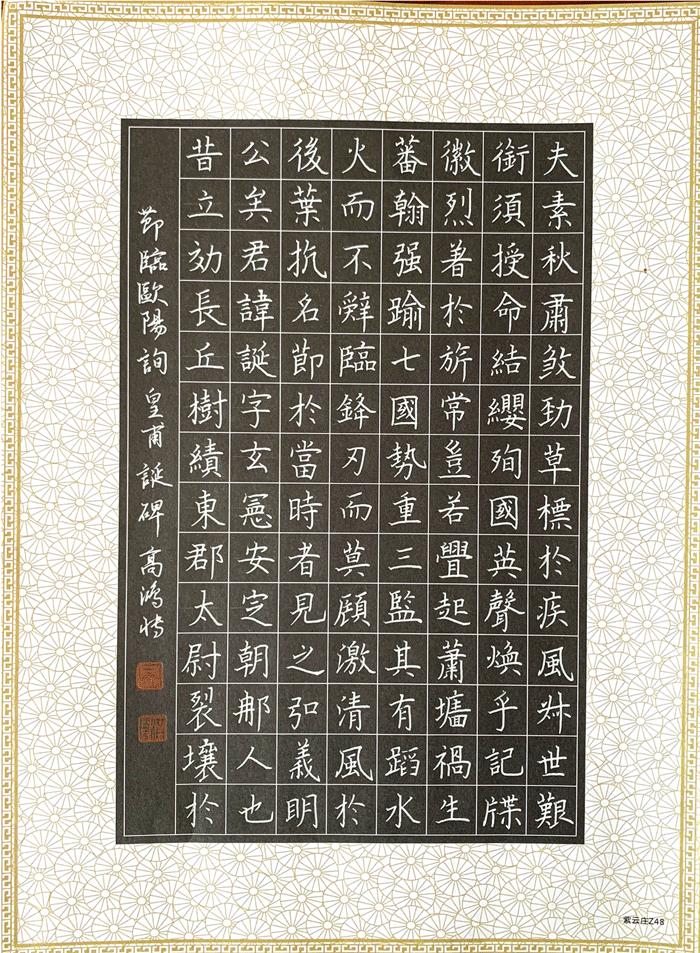 夫素秋肅煞勁草標於疾風叔世艱
銜須授命結纓殉國英聲煥乎記牒
徽烈著於旂常豈若舋起蕭墻禍生
蕃翰强踰七國勢重三監其有蹈水
火而不辤臨鋒刃而莫顧激清風於
後葉抗名節於當時者見之弘義明
公矣君諱誕字玄憲安定朝那人也
昔立効長丘樹績東郡太尉裂壤於
節臨歐陽詢皇甫誕碑 高鴻
紫云庄Z48